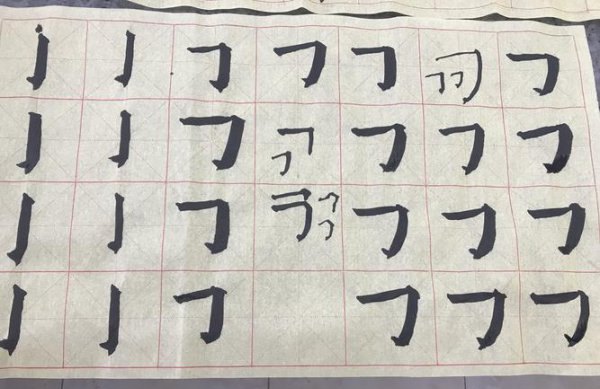 亅 亅 𠃌 𠃌 𠃌 𠃌
亅 亅 𠃌 𠃌 𠃌 𠃌
亅 亅 𠃌 𠃌 𠃌 𠃌
亅 亅 𠃌 𠃌 𠃌 𠃌